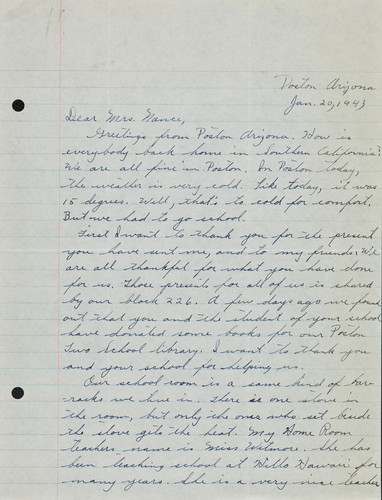 Poston Arizona
Jan. 20, 1943
Dear Mrs. Nance,
Greetings from Poston Arizona. How is
everybody back home in Southern California?
We are all fine in Poston. In Poston today,
the weather is very cold. Like today, it was
15 degrees. Well, that's to cold for comfort.
But we had to go school.
First I want to thank you for the present
you have sent me, and to my friends. We
are all thankful for what you have done
for us. Those presents for all of us is shared
by our block 226. A few days ago we found
out that you and the student of your school
have donated some books for our Poston
Two School library. I want to thank you
and your school for helping us.
Our school room is a same kind of bar-
cracks we live in. There is one stove in
the room, but only the ones who set beside
the stove gets the heat. My Home Room
Teachers name is Miss Witmore. She has
been teaching school at Hillo Hawaii for
many years. She is a very nice teacher